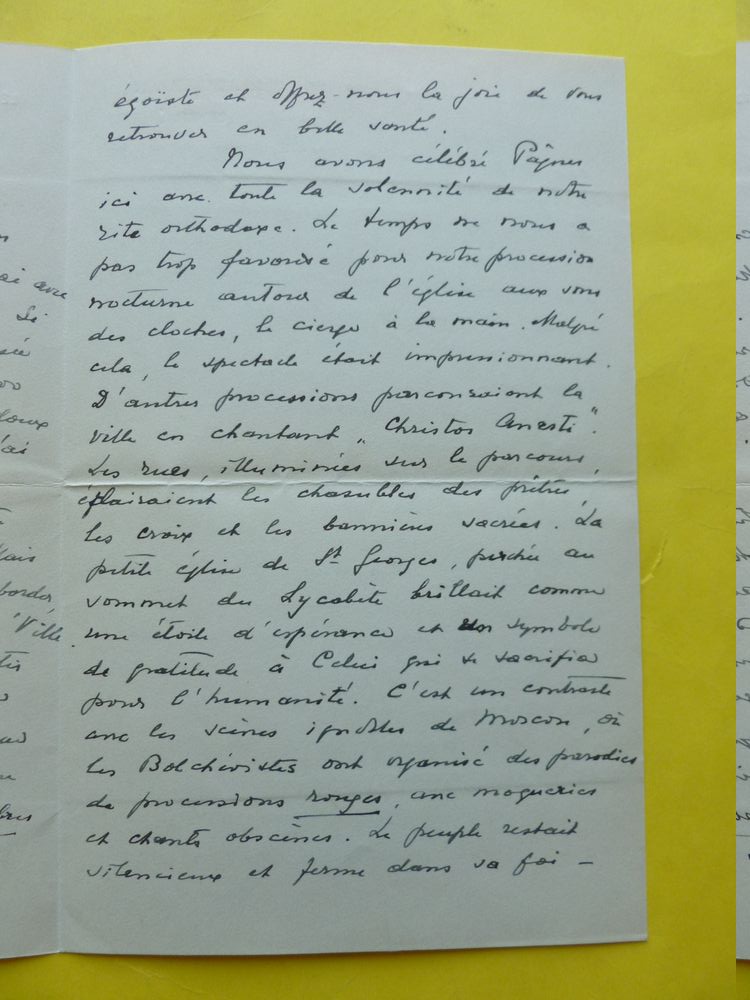 égoïste et offrez-nous la joie de vous
retrouver en belle santé.
Nous avons célébré Pâques
ici avec toute la solennité de notre
rite orthodoxe. Le temps ne nous a
pas trop favorisé pour notre procession
nocturne autour de l'église aux sons
des cloches, le cierge à la main. Malgré
cela, le spectacle était impressionnant.
D'autres processions parcouraient la
ville en chantant „Christos Anesti".
Les rues, illuminées sur le parcours,
éclairaient les chasubles des prêtres,
les croix et les bannières sacrées. La
petite église de St Georges, perchée au
sommet du Lycabète brillait comme
une étoile d'espérance et un symbole
de gratitude à Celui qui se sacrifia
pour l'humanité. C'est un contraste
avec les scènes ignobles de Moscou, où
les Bolchévistes ont organisé des parodies
de processions rouges, avec moqueries
et chants obscènes. Le peuple restait
silencieux et ferme dans sa foi –
ai avec
Si
doux
j'ai
border,
Ville.